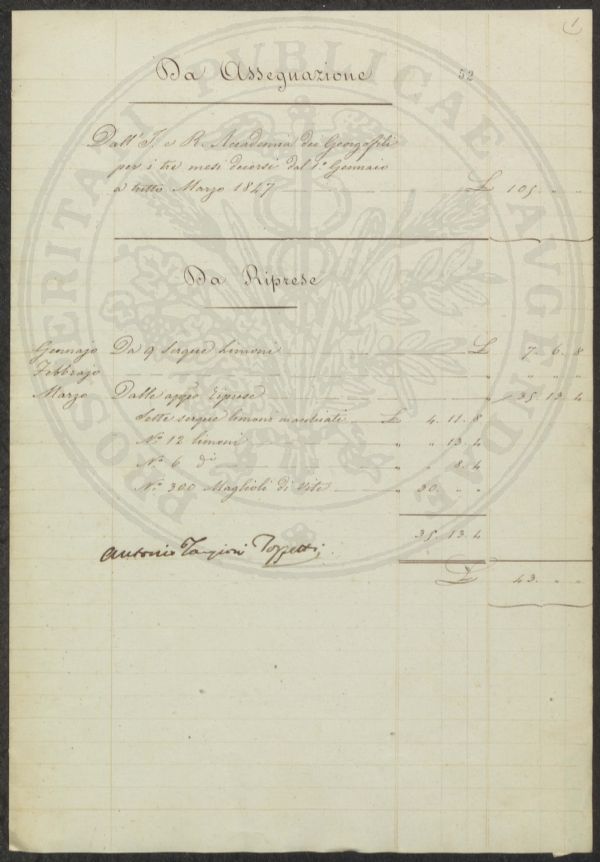 1
Da Assegnazione 52
Dall' I. e R. Accademia dei Georgofili
per i tre mesi decorsi dal 1º Gennaio
a tutto Marzo 1847 £ 105. " "
Da Riprese
Gennajo Da 9 serque Limoni £ 7. 6. 8
Febbrajo " " " "
Marzo Dalle appº Riprese " 35. 13. 4
Sette serque limoni £ 4. 11. 8
Nº 12 limoni " " 13. 4
Nº 6 di " " 8. 4
Nº 300 Maglioli di Vite " 30. " "
35. 13. 4
Antonio Targioni Tozzetti
£ 43. " "
PROSPERITATI PUBLICAE AUGENDAE